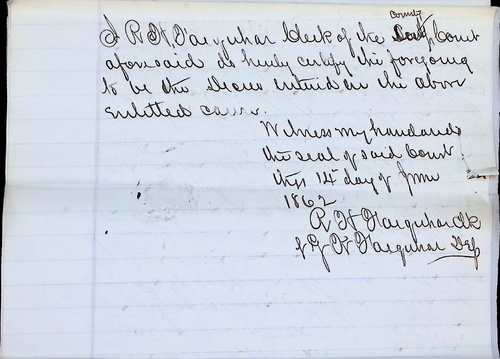 county
I R. H. Farquhar Clerk of the Court
aforesaid do hereby certify the foregoing
to be the decree entered in the above
entitled cause.
Witness my hand and
the seal of said Court
this 14th day of June
1862
R H Farquhar Clk
G H Farquhar Dep